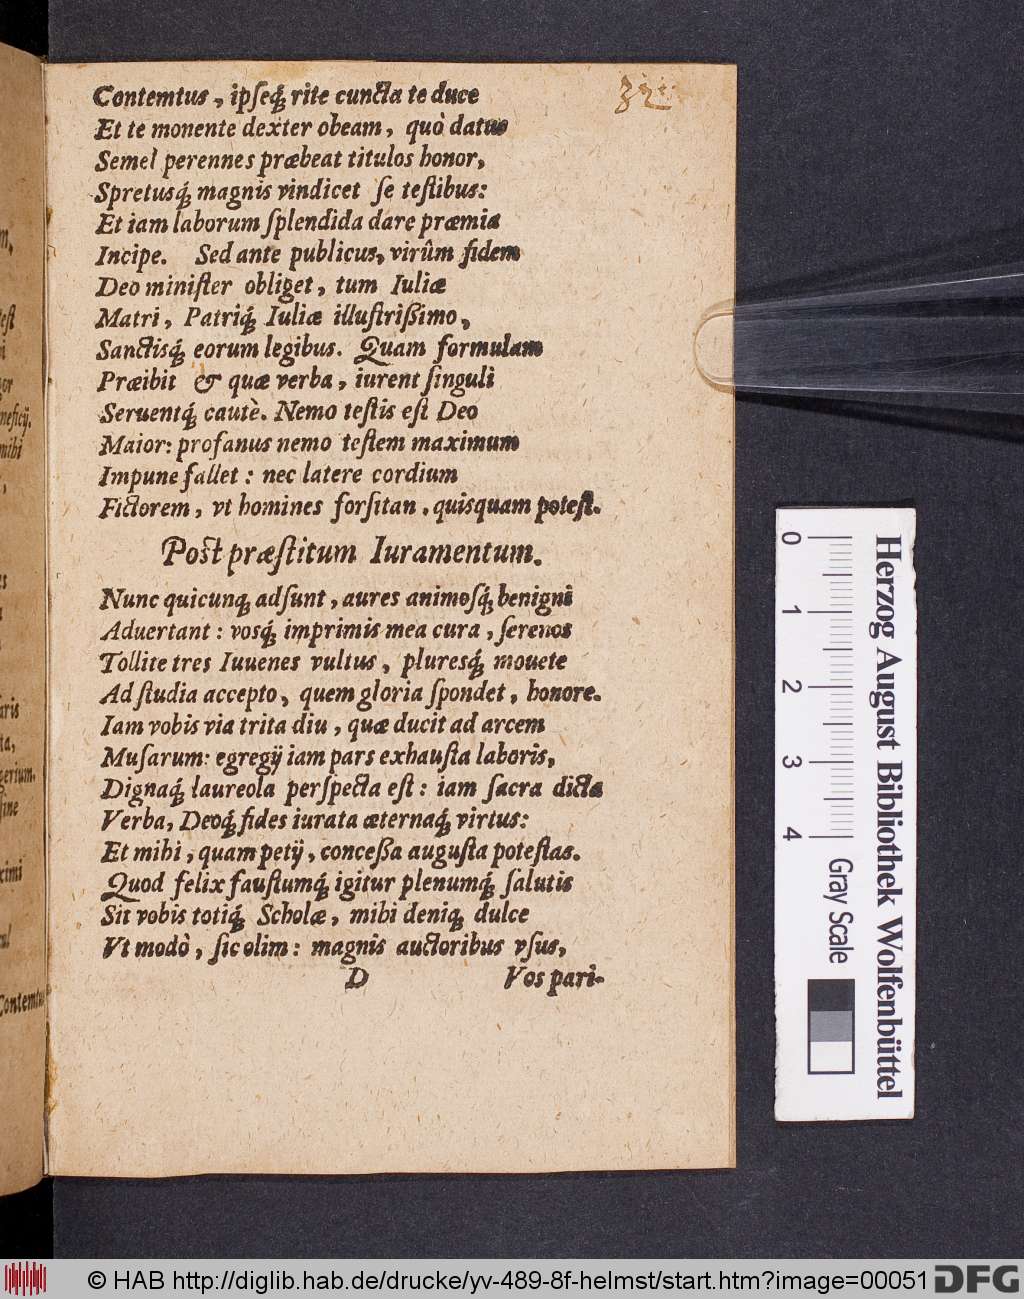 32
Contemtus, ipſeq́; rite cuncta te duce
Et te monente dexter obeam, quò datus
Semel perennes præbeat titulos honor,
Spretusq́; magnis vindicet ſe teſtibus:
Et iam laborum ſplendida dare præmia
Incipe. Sed ante publicus, virûm fidem
Deo miniſter obliget, tum Iuliæ
Matri, Patriq́; Iuliæ illuſtrißimo,
Sanctisq́; eorum legibus. Quam formulam
Præibit & quæ verba, iurent ſinguli
Seruentq́; cautè. Nemo teſtis eſt Deo
Maior: profanus nemo teſtem maximum
Impune fallet: nec latere cordium
Fictorem, vt homines forſitan, quisquam poteſt.
Poſt præſtitum Iuramentum.
Nunc quicunq; adſunt, aures animosq́; benigni
Aduertant: vosq́; imprimis mea cura, ſerenos
Tollite tres Iuuenes vultus, pluresq́; mouete
Ad ſtudia accepto, quem gloria ſpondet, honore.
Iam vobis via trita diu, quæ ducit ad arcem
Muſarum: egregij iam pars exhauſta laboris,
Dignaq́; laureola perſpecta eſt: iam ſacra dicta
Verba, Deoq́; fides iurata æternaq́; virtus:
Et mihi, quam petij, conceßa auguſta poteſtas.
Quod felix fauſtumq́; igitur plenumq́; ſalutis
Sit vobis totiq́; Scholæ, mihi deniq; dulce
Vt modò, ſic olim: magnis auctoribus vſus,
D Vos pari-
0 1 2 3 4
Herzog August Bibliothek Wolfenbüttel
Gray Scale
© HAB http://diglib.hab.de/drucke/yv-489-8f-helmst/start.htm?image=00051
DFG